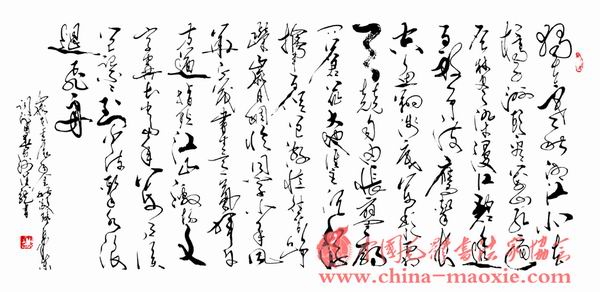 独立寒秋湘江北去
橘子洲头看万山红遍
层林尽染漫江碧透
百舸争流鹰击长
空鱼翔浅底万类霜
天竞自由怅寥廓
问苍茫大地谁主沉浮
携来百侣曾游忆往昔峥
嵘岁月稠恰同学少年风
华正茂书生意气挥斥
方遒指点江山激扬文
字粪土当年万户侯
曾记否到中流击水浪
遏飞舟
中国毛体书法家协会
www.china-maoxie.com